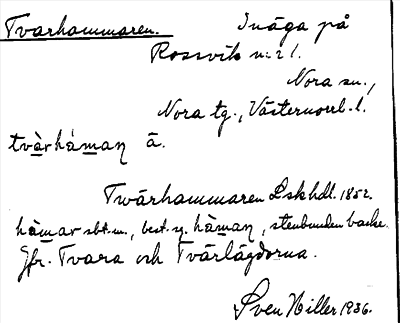 Tvärhammaren. Inäga på
Rossvik n:r 21.
Nora sn.,
Nora tg., Västernorrl. l.
tvàrhàmaη ā.
Tvärhammaren Lskhdl. 1852.
hàmar sbt. m., best. sg. hàmaη, stenbunden backe.
Jfr. Tvara och Tvärlägdorna.
Sven Hiller 1936.